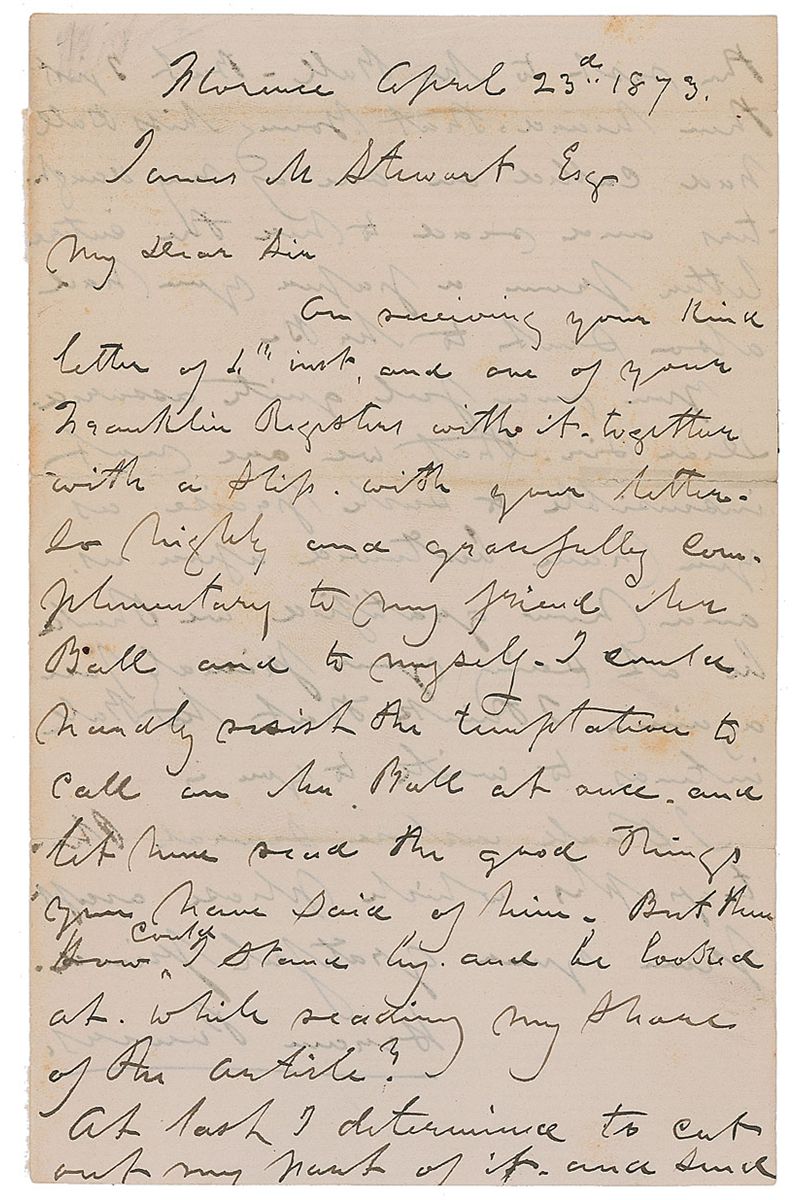 Florence April 23d. 1873.
James M Stewart Esq
My Dear Sir
On receiving your kind
letter of 4th inst, and one of your
Franklin Registers with it. together
with a slip. with your letter.
so highly and gracefully com-
plimentary to my friend Mr
Ball and to myself. I could
hardly resist the temptation to
call on Mr. Ball at once. and
let him read the good things
you have said of him. But then
how could I stand by. and be looked
at. while reading my share
of the article?
At last I determined to cut
out my part of it. and send